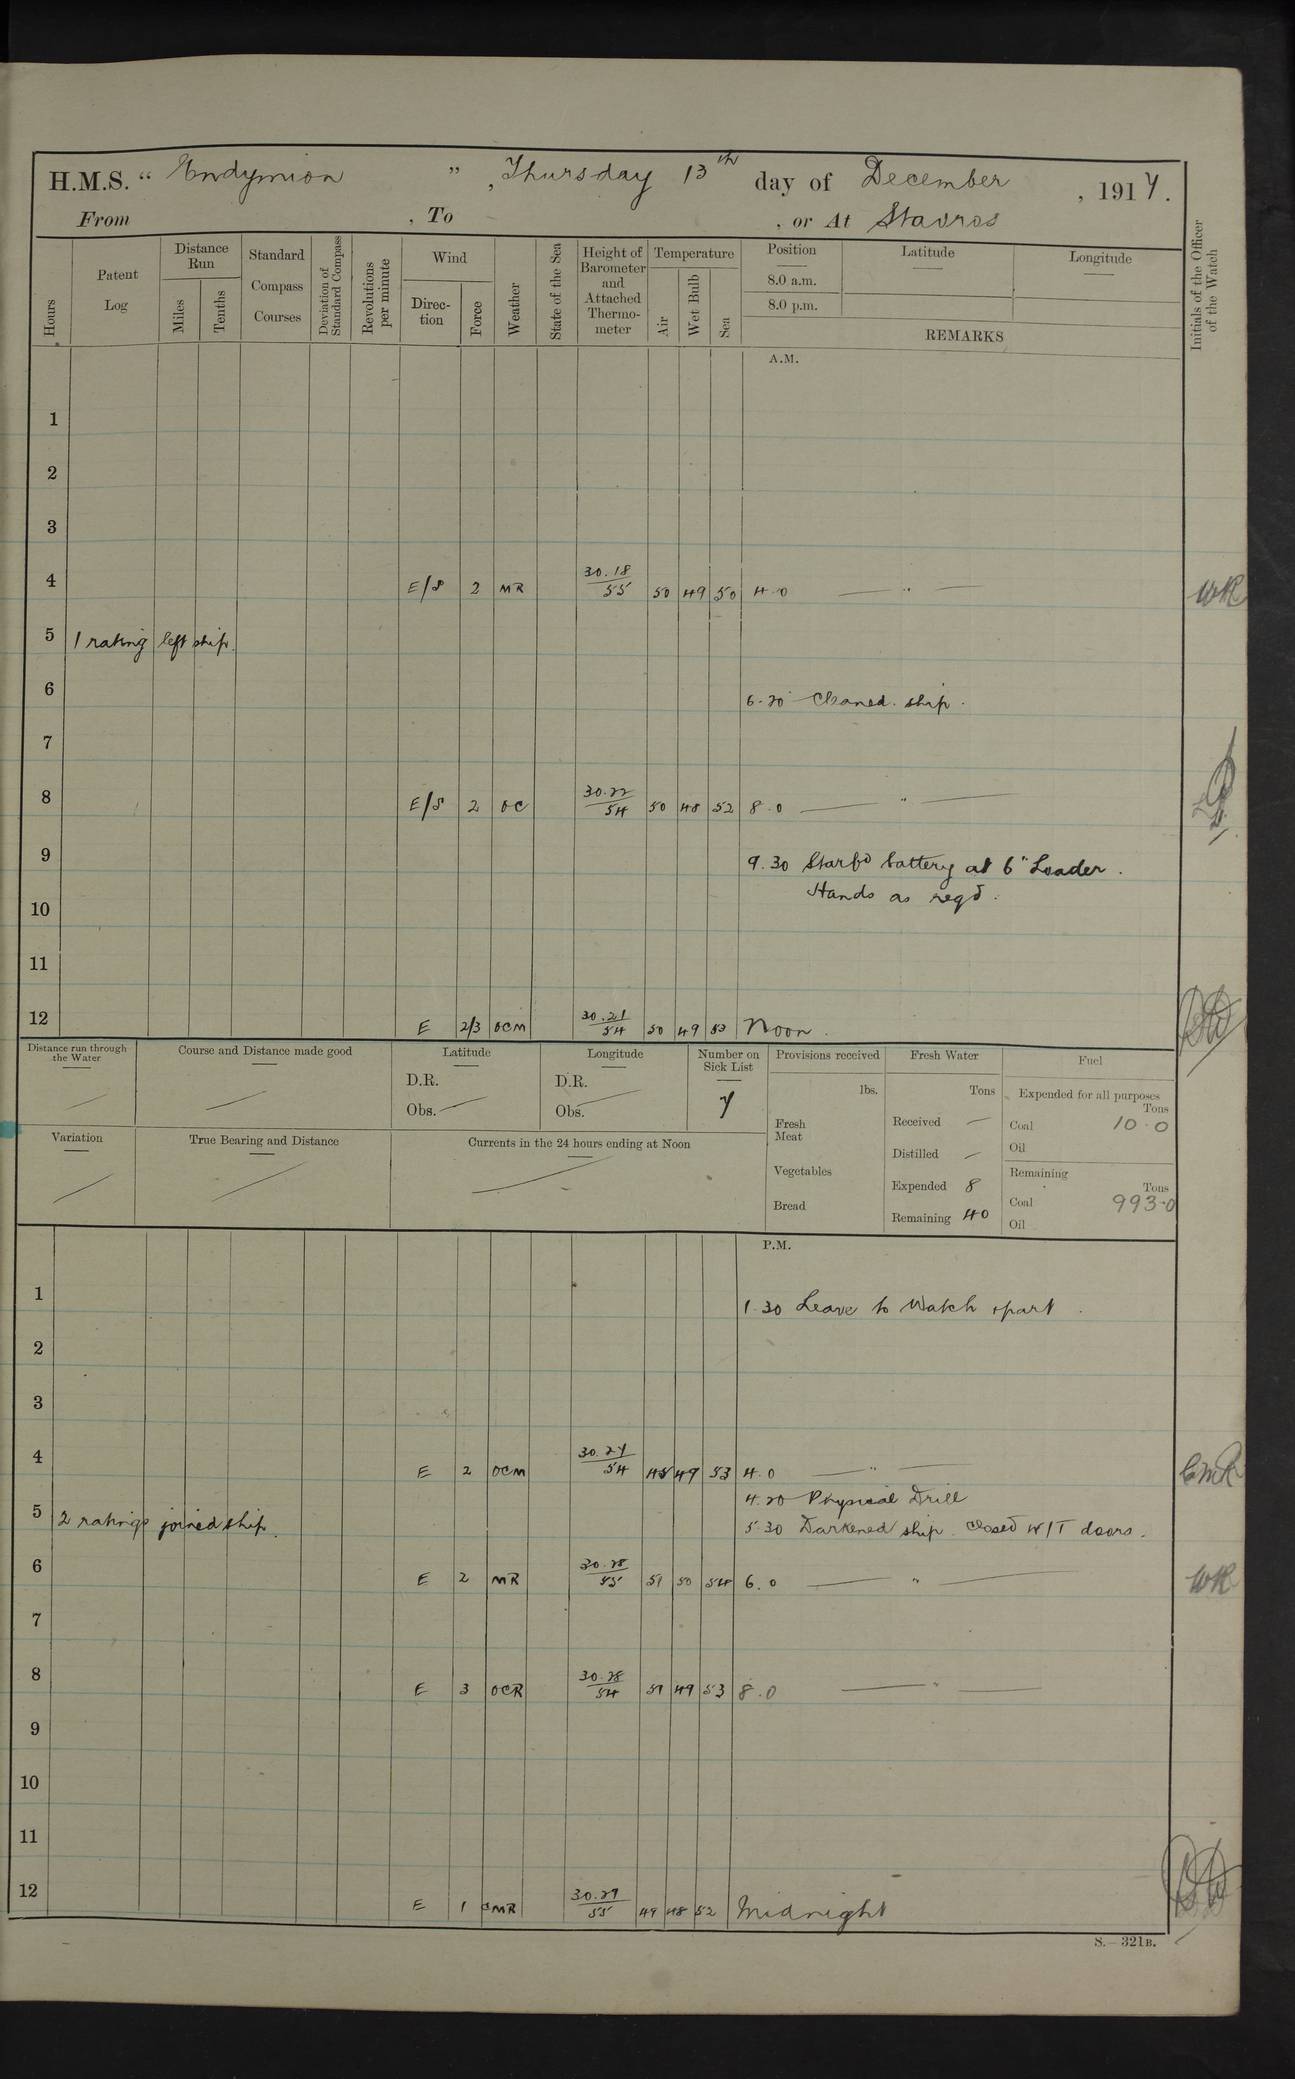 H.M.S. " Endymion ", Thursday 13th day of December, 1917.
From , To , or At Stavros
Hours
Patent Log
Distance Run
Miles
Tenths
Standard Compass Courses
Deviation of Standard Compass
Revolutions per minute
Wind
Direc-tion
Force
Weather
State of the Sea
Height of Barometer and Attached Thermo-meter
Temperature
Air
Wet Bulb
Sea
Position
8.0 a.m.
8.0 p.m.
Latitude
Longitude
REMARKS
Initials of the Officer of the Watch
A.M.
1
2
3
4 E/S 2 MR 30.18/55 50 49 50 4.0 — " — WR
5 1 rating left ship.
6 6.20 Cleaned ship.
7
8 E/S 2 OC 30.22/54 50 48 52 8.0 — " —
9 9.30 Starbd battery at 6" Loader.
Hands as reqd.
10
11
12 E 2/3 OCM 30.21/54 50 49 53 Noon.
Distance run through the Water
Course and Distance made good
Latitude
D.R.
Obs.
Longitude
D.R.
Obs.
Number on Sick List
7
Provisions received
lbs.
Fresh Meat
Vegetables
Bread
Fresh Water
Tons
Received —
Distilled —
Expended 8
Remaining 40
Fuel
Expended for all purposes
Tons
Coal 10.0
Oil
Remaining
Tons
Coal 993.0
Oil
Variation
True Bearing and Distance
Currents in the 24 hours ending at Noon
P.M.
1 1.30 Leave to Watch & part.
2
3
4 E 2 OCM 30.27/54 48 49 53 4.0 — " —
4.20 Physical Drill
5 2 ratings joined ship. 5.30 Darkened ship. Closed W/T doors.
6 E 2 MR 30.28/55 51 50 54 6.0 — " — WR
7
8 E 3 OCR 30.28/54 51 49 53 8.0 — " —
9
10
11
12 E 1 CMR 30.29/55 49 48 52 Midnight
S.—321B.